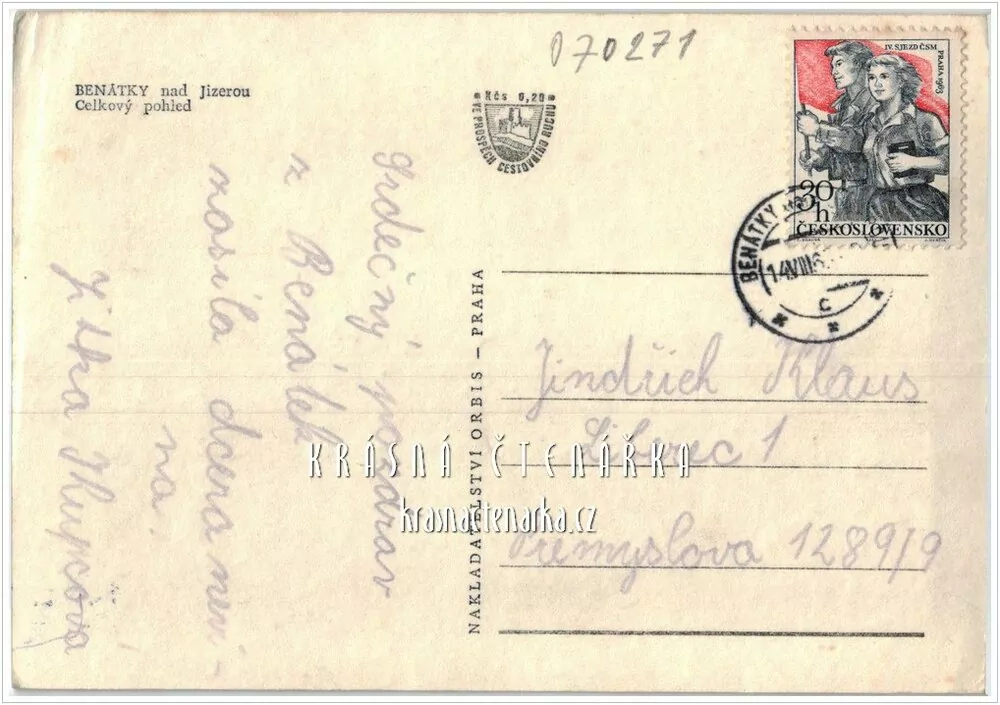 070271
IV. SJEZD ČSM
PRAHA 1963
30
h
ČESKOSLOVENSKO
BENÁTKY nad Jizerou
Celkový pohled
Kčs 0,20
VE PROSPĚCH CESTOVNÍHO RUCHU
BENÁTKY
14.VIII.6
C
Srdečný pozdrav
z Benátek
zasílá dcera neni-
na.
Jitka
NAKLADATELSTVÍ ORBIS – PRAHA
Jindřich Klaus
Liberec 1
Přemyslova 1289/9
KRÁSNÁ ČTENÁŘKA
krasnactenarka.cz